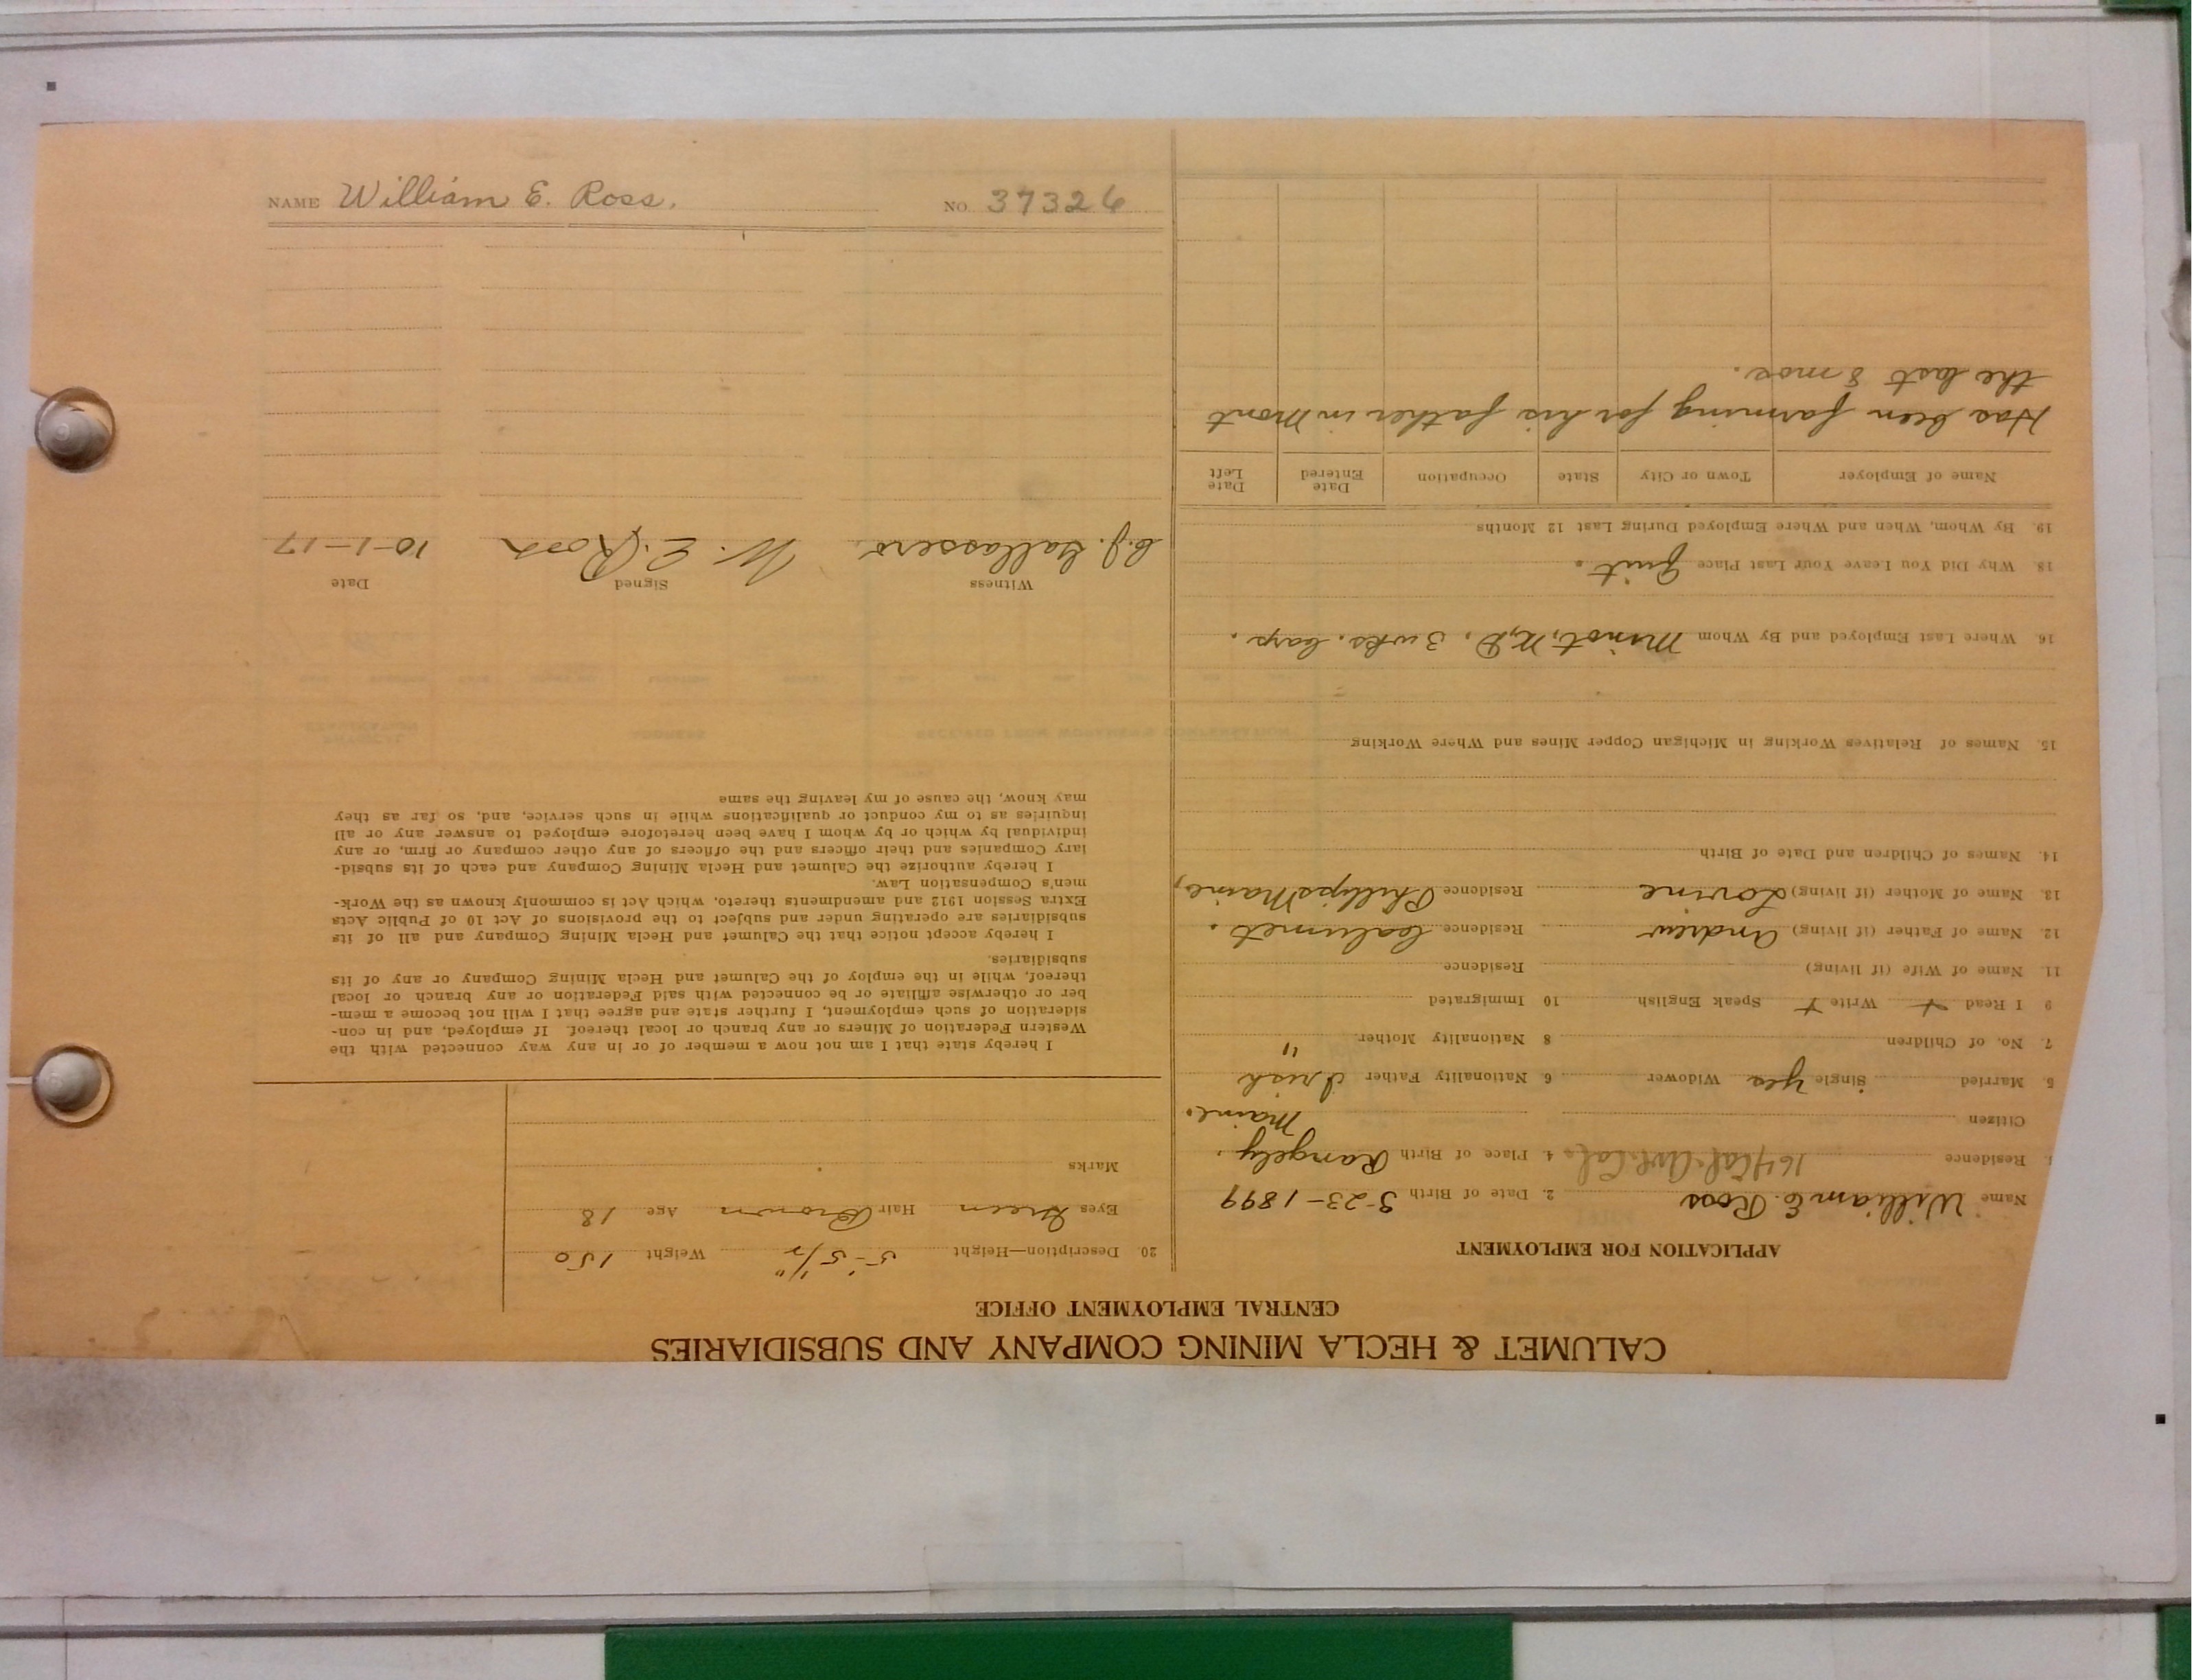 CALUMET & HECLA MINING COMPANY AND SUBSIDIARIES
CENTRAL EMPLOYMENT OFFICE
APPLICATION FOR EMPLOYMENT
Name William E. Ross 2. Date of Birth 3-23-1899
1. Residence 164 Cal. Ave. Cal. 4. Place of Birth Rangely.
Maine.
Citizen
5. Married Single yes Widower 6 Nationality Father Irish
7. No. of Children 8 Nationality Mother "
9 I Read + Write + Speak English 10 Immigrated
11. Name of Wife (if living) Residence
12. Name of Father (if living) Andrew Residence Calumet.
13. Name of Mother (if living) Lovine Residence Phillips Maine,
14. Names of Children and Date of Birth
15. Names of Relatives Working in Michigan Copper Mines and Where Working
16. Where Last Employed and By Whom Minot, N.D. 3 wks. Carp.
18. Why Did You Leave Your Last Place Quit.
19. By Whom, When and Where Employed During Last 12 Months
Name of Employer Town or City State Occupation Date Entered Date Left
Has been farming for his father in Mont
the last 8 mos.
20. Description—Height 5'-5 1/2" Weight 150
Eyes Green Hair Brown Age 18
Marks
I hereby state that I am not now a member of or in any way connected with the
Western Federation of Miners or any branch or local thereof. If employed, and in con-
sideration of such employment, I further state and agree that I will not become a mem-
ber or otherwise affiliate or be connected with said Federation or any branch or local
thereof, while in the employ of the Calumet and Hecla Mining Company or any of its
subsidiaries.
I hereby accept notice that the Calumet and Hecla Mining Company and all of its
subsidiaries are operating under and subject to the provisions of Act 10 of Public Acts
Extra Session 1912 and amendments thereto, which Act is commonly known as the Work-
men's Compensation Law.
I hereby authorize the Calumet and Hecla Mining Company and each of its subsid-
iary Companies and their officers and the officers of any other company or firm, or any
individual by which or by whom I have been heretofore employed to answer any or all
inquiries as to my conduct or qualifications while in such service, and, so far as they
may know, the cause of my leaving the same
Witness Signed Date
C.J. Gallassero. W. E. Ross 10-1-17
NAME William E. Ross. NO. 37326